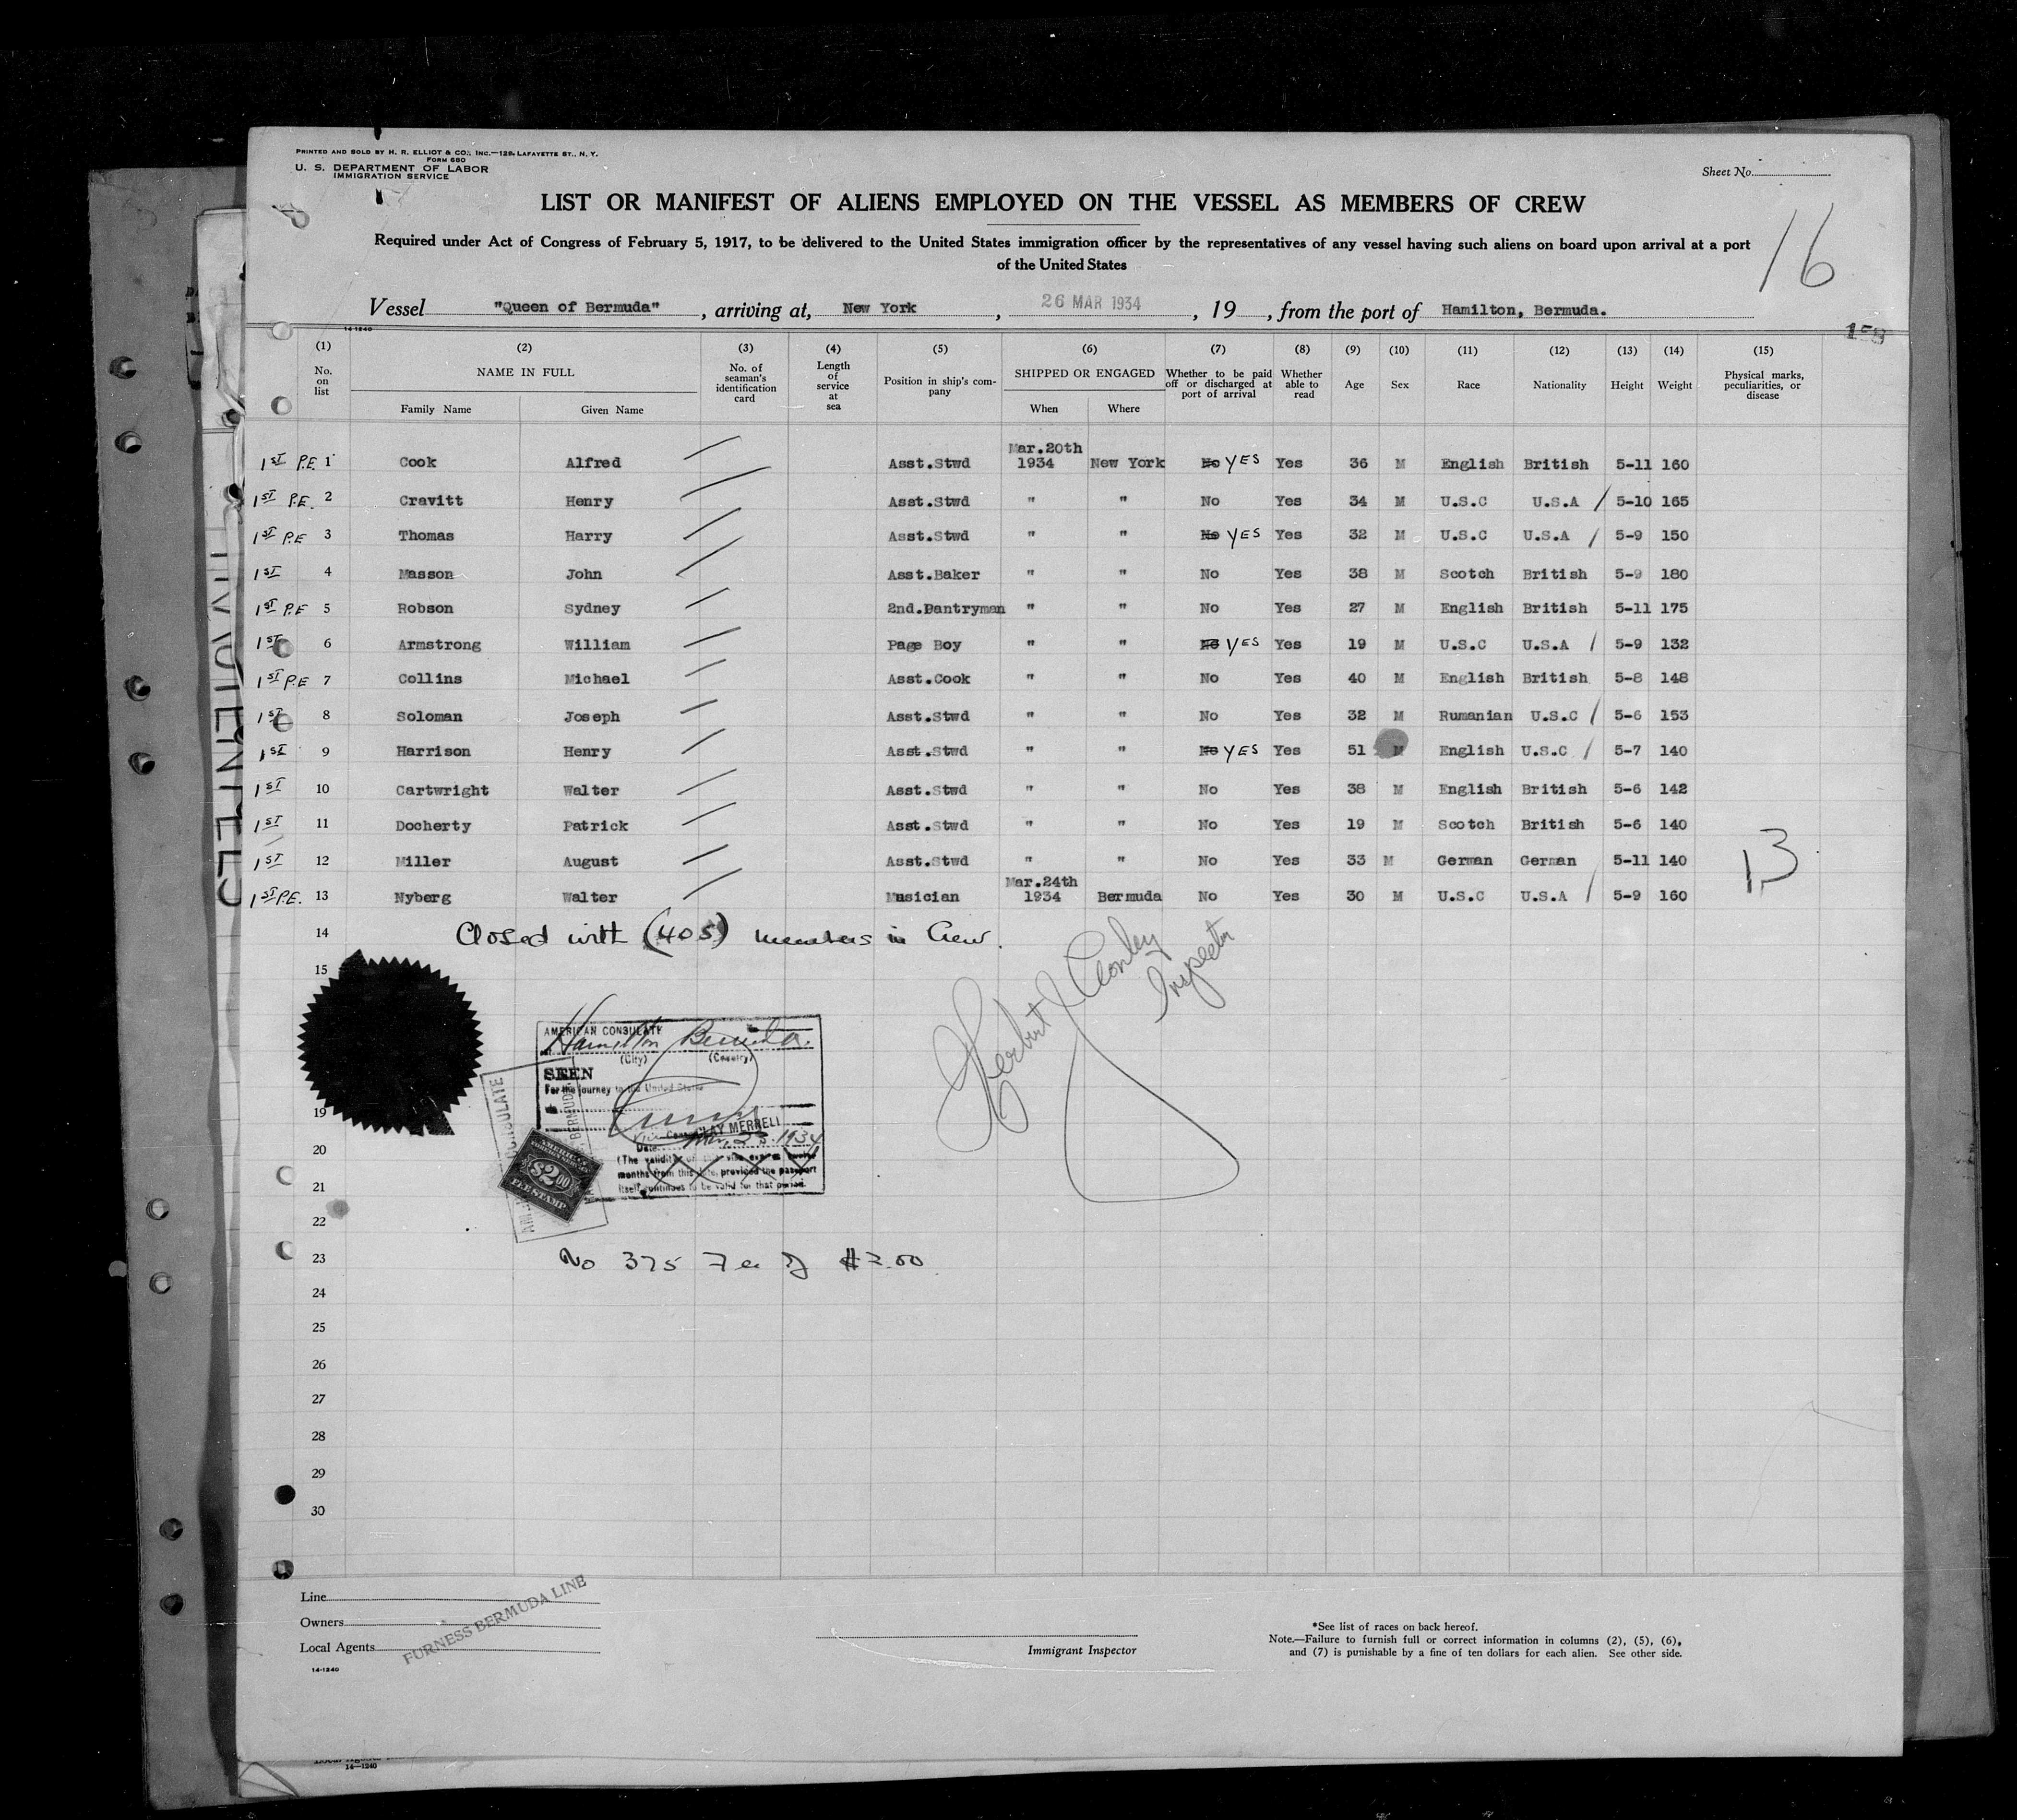 PRINTED AND SOLD BY H. R. ELLIOT & CO., INC.—129, LAFAYETTE ST., N. Y.
FORM 680
U. S. DEPARTMENT OF LABOR
IMMIGRATION SERVICE
Sheet No.
LIST OR MANIFEST OF ALIENS EMPLOYED ON THE VESSEL AS MEMBERS OF CREW
16
Required under Act of Congress of February 5, 1917, to be delivered to the United States immigration officer by the representatives of any vessel having such aliens on board upon arrival at a port
of the United States
Vessel "Queen of Bermuda", arriving at, New York, 26 MAR 1934, 19, from the port of Hamilton, Bermuda.
14-1240
158
(1) No. on list (2) NAME IN FULL Family Name Given Name (3) No. of seaman's identification card (4) Length of service at sea (5) Position in ship's company (6) SHIPPED OR ENGAGED When Where (7) Whether to be paid off or discharged at port of arrival (8) Whether able to read (9) Age (10) Sex (11) Race (12) Nationality (13) Height (14) Weight (15) Physical marks, peculiarities, or disease
1ST P.E 1 Cook Alfred Asst.Stwd Mar.20th 1934 New York No YES Yes 36 M English British 5-11 160
1ST P.E. 2 Cravitt Henry Asst.Stwd " " No Yes 34 M U.S.C U.S.A / 5-10 165
1ST P.E 3 Thomas Harry Asst.Stwd " " No YES Yes 32 M U.S.C U.S.A / 5-9 150
1ST 4 Masson John Asst.Baker " " No Yes 38 M Scotch British 5-9 180
1ST P.E 5 Robson Sydney 2nd.Pantryman " " No Yes 27 M English British 5-11 175
1ST 6 Armstrong William Page Boy " " No YES Yes 19 M U.S.C U.S.A / 5-9 132
1ST P.E 7 Collins Michael Asst.Cook " " No Yes 40 M English British 5-8 148
1ST 8 Soloman Joseph Asst.Stwd " " No Yes 32 M Rumanian U.S.C / 5-6 153
1ST 9 Harrison Henry Asst.Stwd " " No YES Yes 51 M English U.S.C / 5-7 140
1ST 10 Cartwright Walter Asst.Stwd " " No Yes 38 M English British 5-6 142
1ST 11 Docherty Patrick Asst.Stwd " " No Yes 19 M Scotch British 5-6 140
1ST 12 Miller August Asst.Stwd " " No Yes 33 M German German 5-11 140
13
1ST P.E. 13 Nyberg Walter Musician Mar.24th 1934 Bermuda No Yes 30 M U.S.C U.S.A / 5-9 160
14 Closed with (405) members in Crew.
Herbert J Conley
Inspector
15
AMERICAN CONSULATE
Hamilton Bermuda.
(City) (Country)
SEEN
For the journey to the United States
19
CLAY MERRELL
Vice Consul
Date Mar. 23. 1934
20
(The validity of this visa expires twelve
months from this date, provided the passport
itself continues to be valid for that period.
AMERICAN
$2.00
FEE STAMP
21
22
23 No 375 Fee of $2.00
24
25
26
27
28
29
30
Line
Owners
Local Agents
FURNESS BERMUDA LINE
14-1240
Immigrant Inspector
*See list of races on back hereof.
Note.—Failure to furnish full or correct information in columns (2), (5), (6),
and (7) is punishable by a fine of ten dollars for each alien. See other side.
14—1240